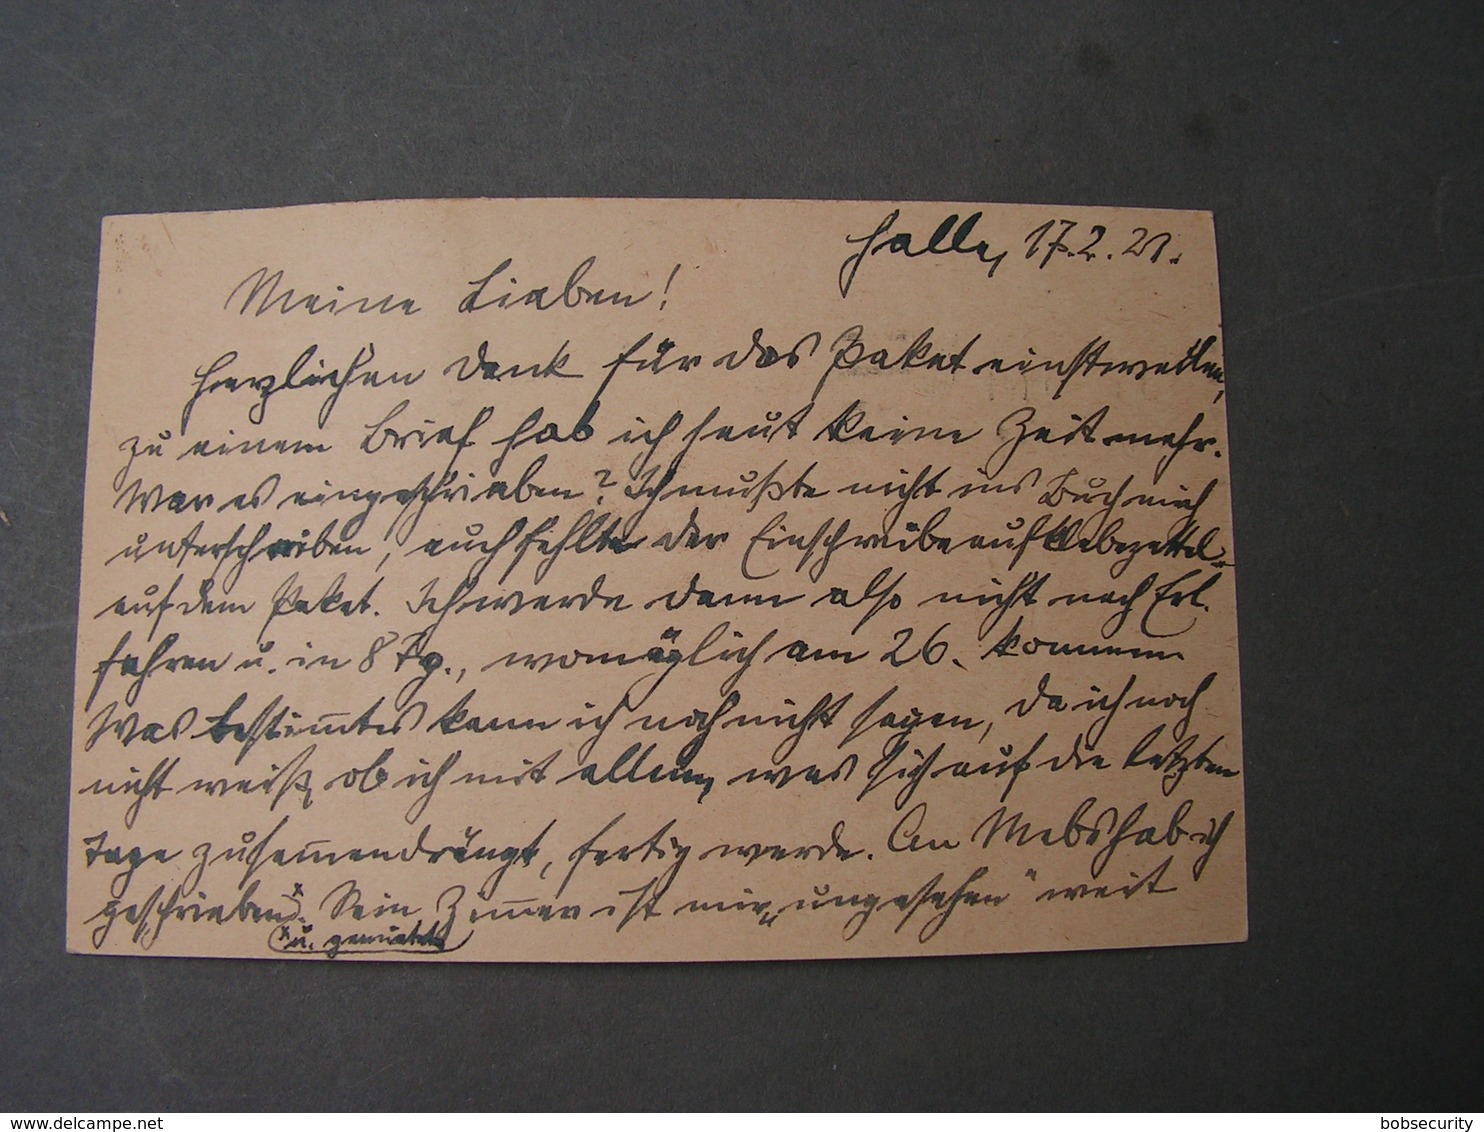 Halle, 17.2.21.
Meine Lieben!
Herzlichen Dank für das Paket einstweilen,
zu einem Brief hab ich heut keine Zeit mehr.
War es eingeschrieben? Ich mußte nicht ins Buch mich
unterschreiben, auch fehlte der Einschreibeaufklebezettel
auf dem Paket. Ich werde dann also nicht nach Erl.
fahren u. in 8 Tg., womöglich am 26. kommen.
Was bestimmtes kann ich noch nicht sagen, da ich noch
nicht weiß, ob ich mit allem, was sich auf die letzten
Tage zusammendrängt, fertig werde. An Mebs hab ich
geschrieben x. Sein Zimmer ist mir „ungesehen" weit
x u. gemietet
delcampe.net
bobsecurity